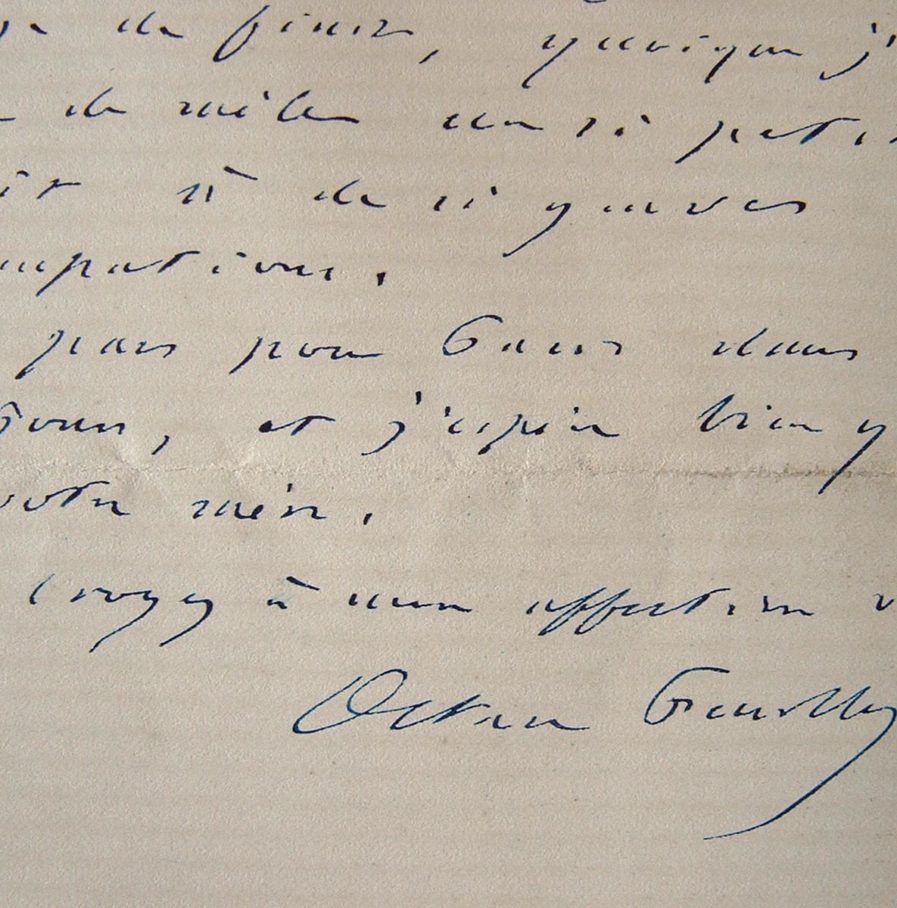 de finir, quoique j'
de mêler un si petit
à de si graves
pour Paris dans
jours, et j'espère bien y
votre mère.
Croyez à mon affection
Octave Feuillet